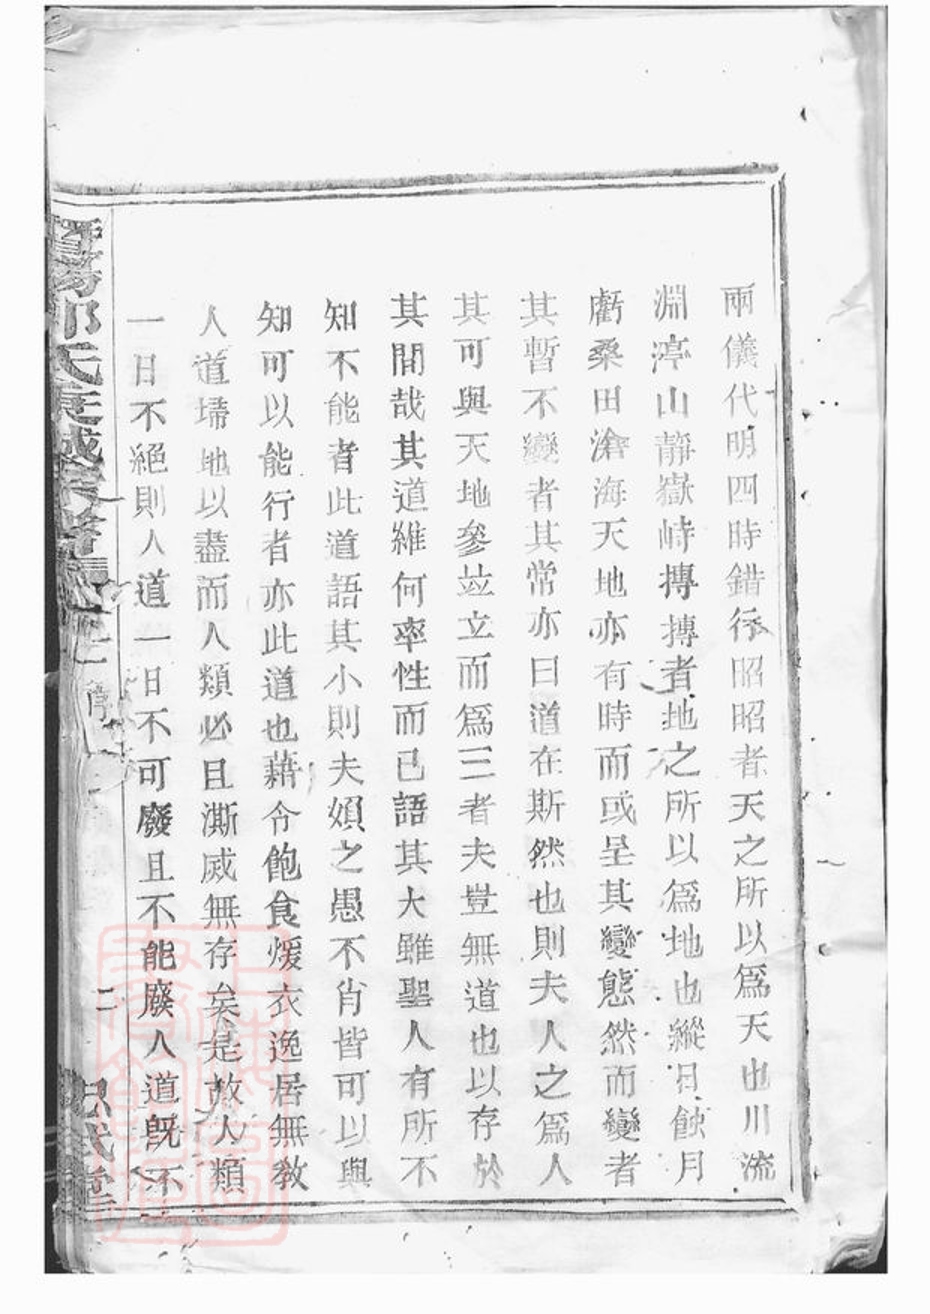 兩儀代明四時錯行昭昭者天之所以爲天也川流
淵渟山靜嶽峙摶摶者地之所以爲地也縱日蝕月
虧桑田滄海天地亦有時而或呈其變態然而變者
其暫不變者其常亦曰道在斯然也則夫人之爲人
其可與天地參竝立而爲三者夫豈無道也以存於
其間哉其道維何率性而已語其大雖聖人有所不
知不能者此道語其小則夫婦之愚不肖皆可以與
知可以能行者亦此道也藉令飽食煖衣逸居無敎
人道埽地以盡而人類必且澌烕無存矣是故人類
一日不絕則人道一日不可廢且不能廢人道旣不
暨陽邱氏
二